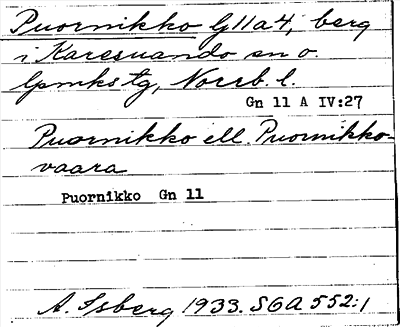 Puornikko G11a4, berg
i Karesuando sn o.
lpmkstg, Norrb. l.
Gn 11 A IV:27
Puornikko ell. Puornikko-
vaara
Puornikko Gn 11
A. Isberg 1933. SGA 552:1